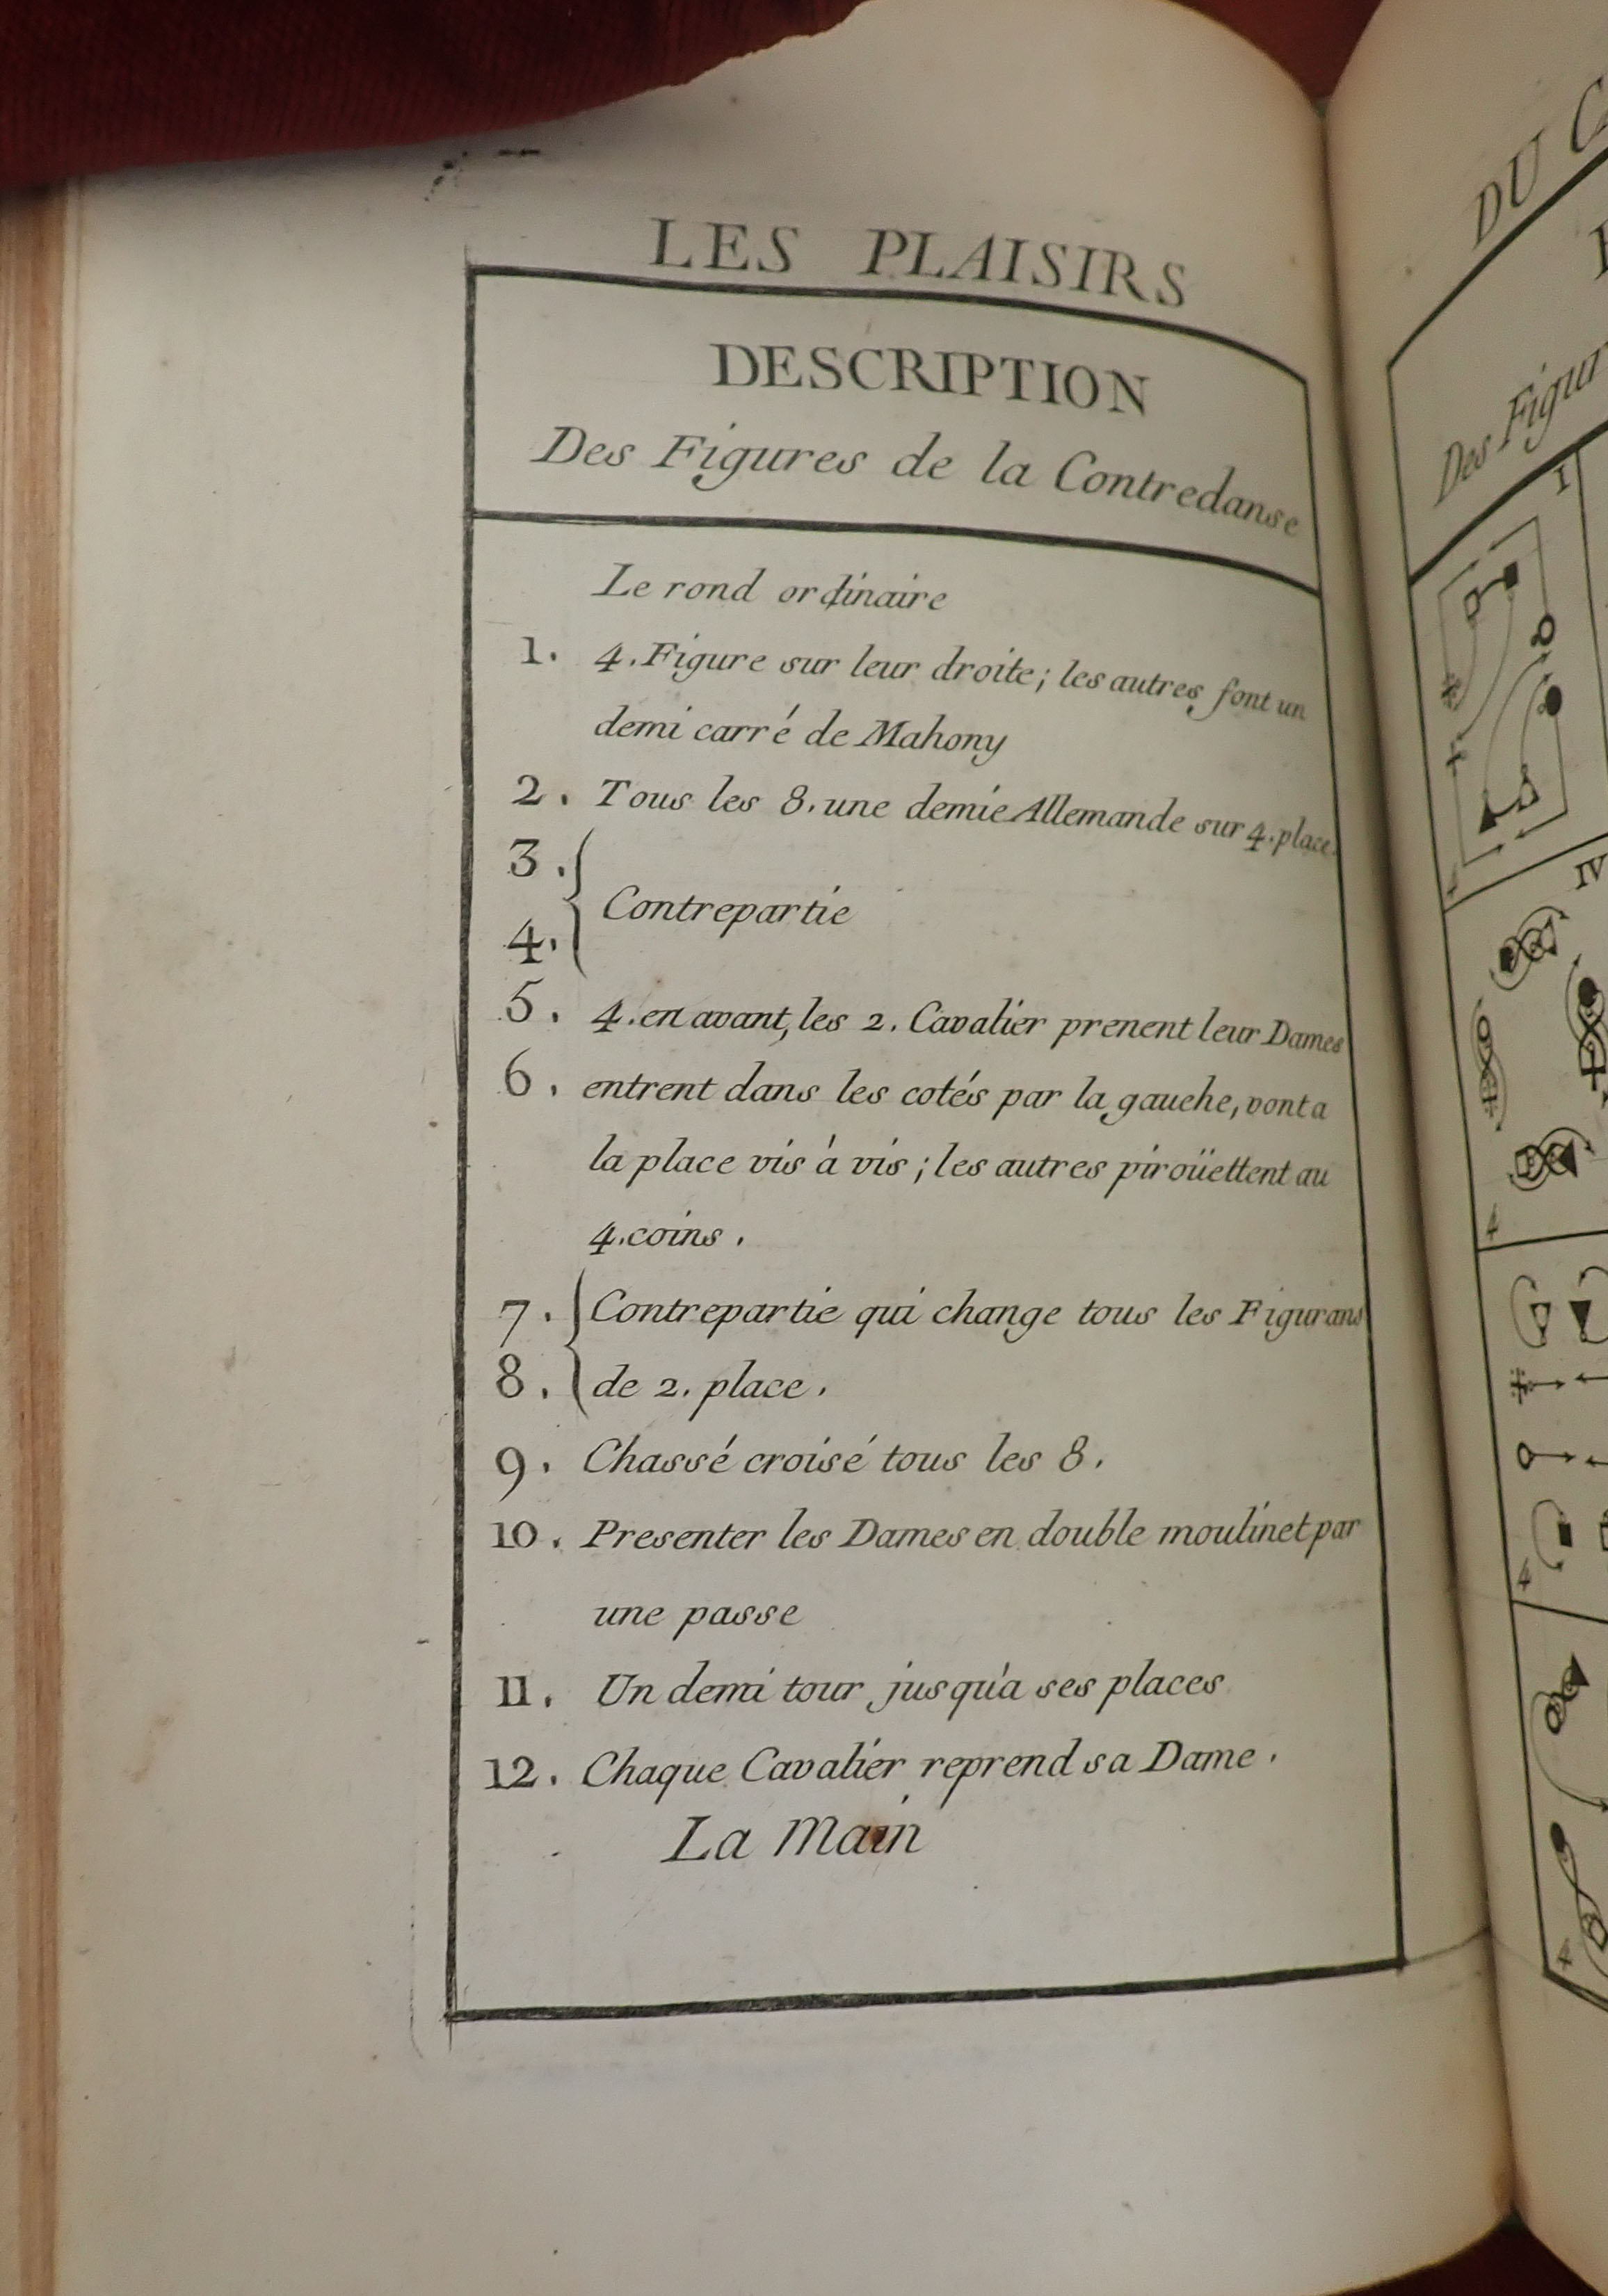 LES PLAISIRS
DESCRIPTION
Des Figures de la Contredanse
Le rond ordinaire
1. 4. Figure sur leur droite; les autres font un
demi carré de Mahony
2. Tous les 8. une demie Allemande sur 4. place.
3.
Contrepartie
4.
5. 4. en avant, les 2. Cavalier prenent leur Dames
6. entrent dans les cotés par la gauche, vont a
la place vis à vis; les autres piroüettent au
4. coins.
7. Contrepartie qui change tous les Figurans
8. de 2. place.
9. Chassé croisé tous les 8.
10. Presenter les Dames en double moulinet par
une passe
11. Un demi tour jusqu'a ses places
12. Chaque Cavalier reprend sa Dame.
La Main
DU
Des Figur
I
IV
4
4
4
4